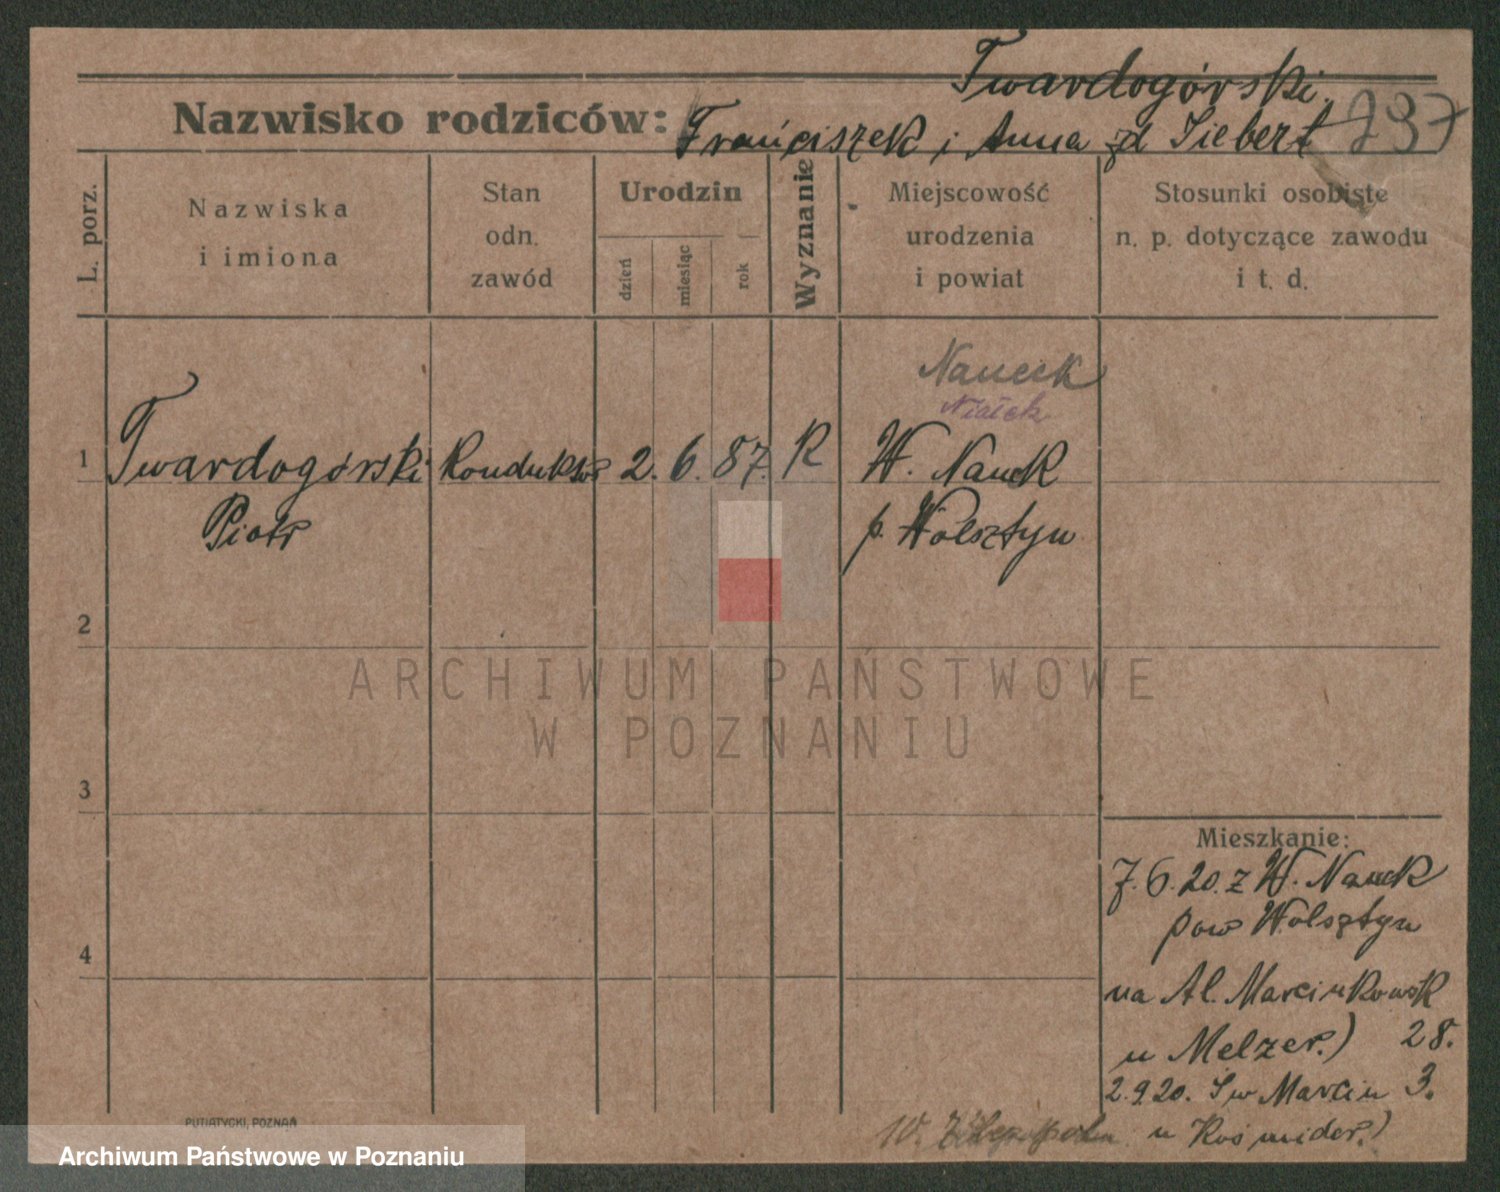 Twardogórski
Nazwisko rodziców: Franciszek i Anna zd Siebert 237
L. porz.
Nazwiska
i imiona
Stan
odn.
zawód
Urodzin
dzień
miesiąc
rok
Wyznanie
Miejscowość
urodzenia
i powiat
Stosunki osobiste
n. p. dotyczące zawodu
i t. d.
Nauek
Niałek
1 Twardogórski Konduktor 2. 6. 87. R W. Nauek
Piotr p. Wolsztyn
2
ARCHIWUM PAŃSTWOWE
W POZNANIU
3
Mieszkanie:
7.6.20. z W. Nauek
pow Wolsztyn
4
na Al. Marcinkowsk
u Melzer.) 28.
2.9.20. Sw Marcin 3.
u Kosmider.)
PUTIATYCKI, POZNAŃ
Archiwum Państwowe w Poznaniu